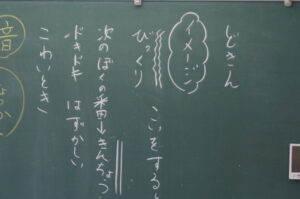 どきん
イメージ
びっくり
こいをすると
次のぼくの番→きんちょう
ドキドキ はずかしい
こわいとき
音